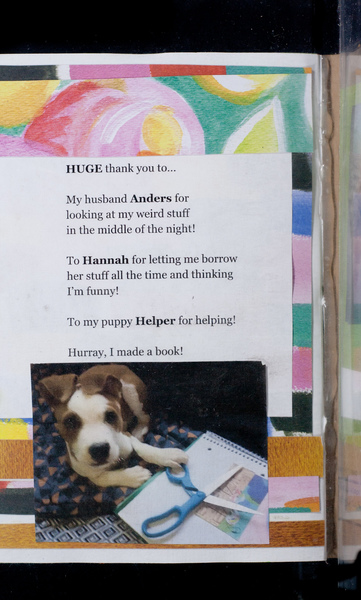 HUGE thank you to...
My husband Anders for
looking at my weird stuff
in the middle of the night!
To Hannah for letting me borrow
her stuff all the time and thinking
I'm funny!
To my puppy Helper for helping!
Hurray, I made a book!